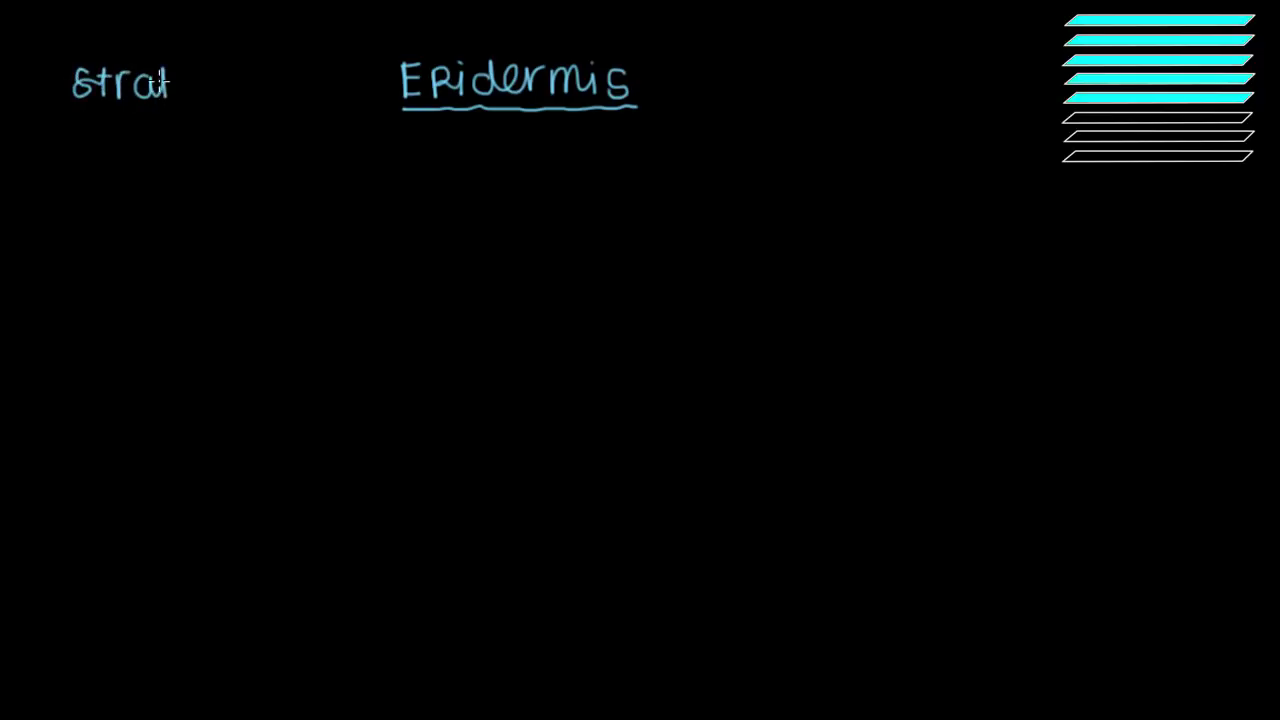 strat Epidermis